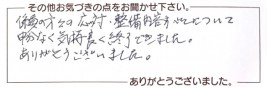 その他お気づきの点をお聞かせ下さい。
係員の方々の応対、整備内容すべてについて
申分なく気持良く終了できました。
ありがとうございました。
ありがとうございました。